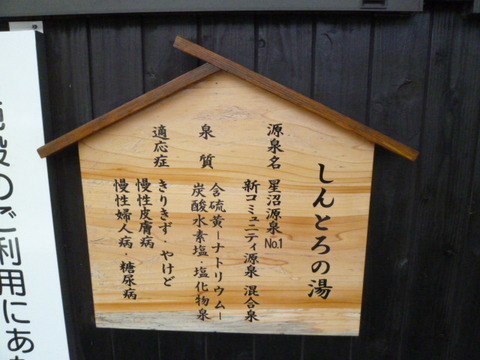 しんとろの湯
源泉名 星沼源泉No.1
新コミュニティ源泉 混合泉
泉質 含硫黄ーナトリウムー
炭酸水素塩・塩化物泉
適応症 きりきず・やけど
慢性皮膚病
慢性婦人病・糖尿病
施設のご利用にあ